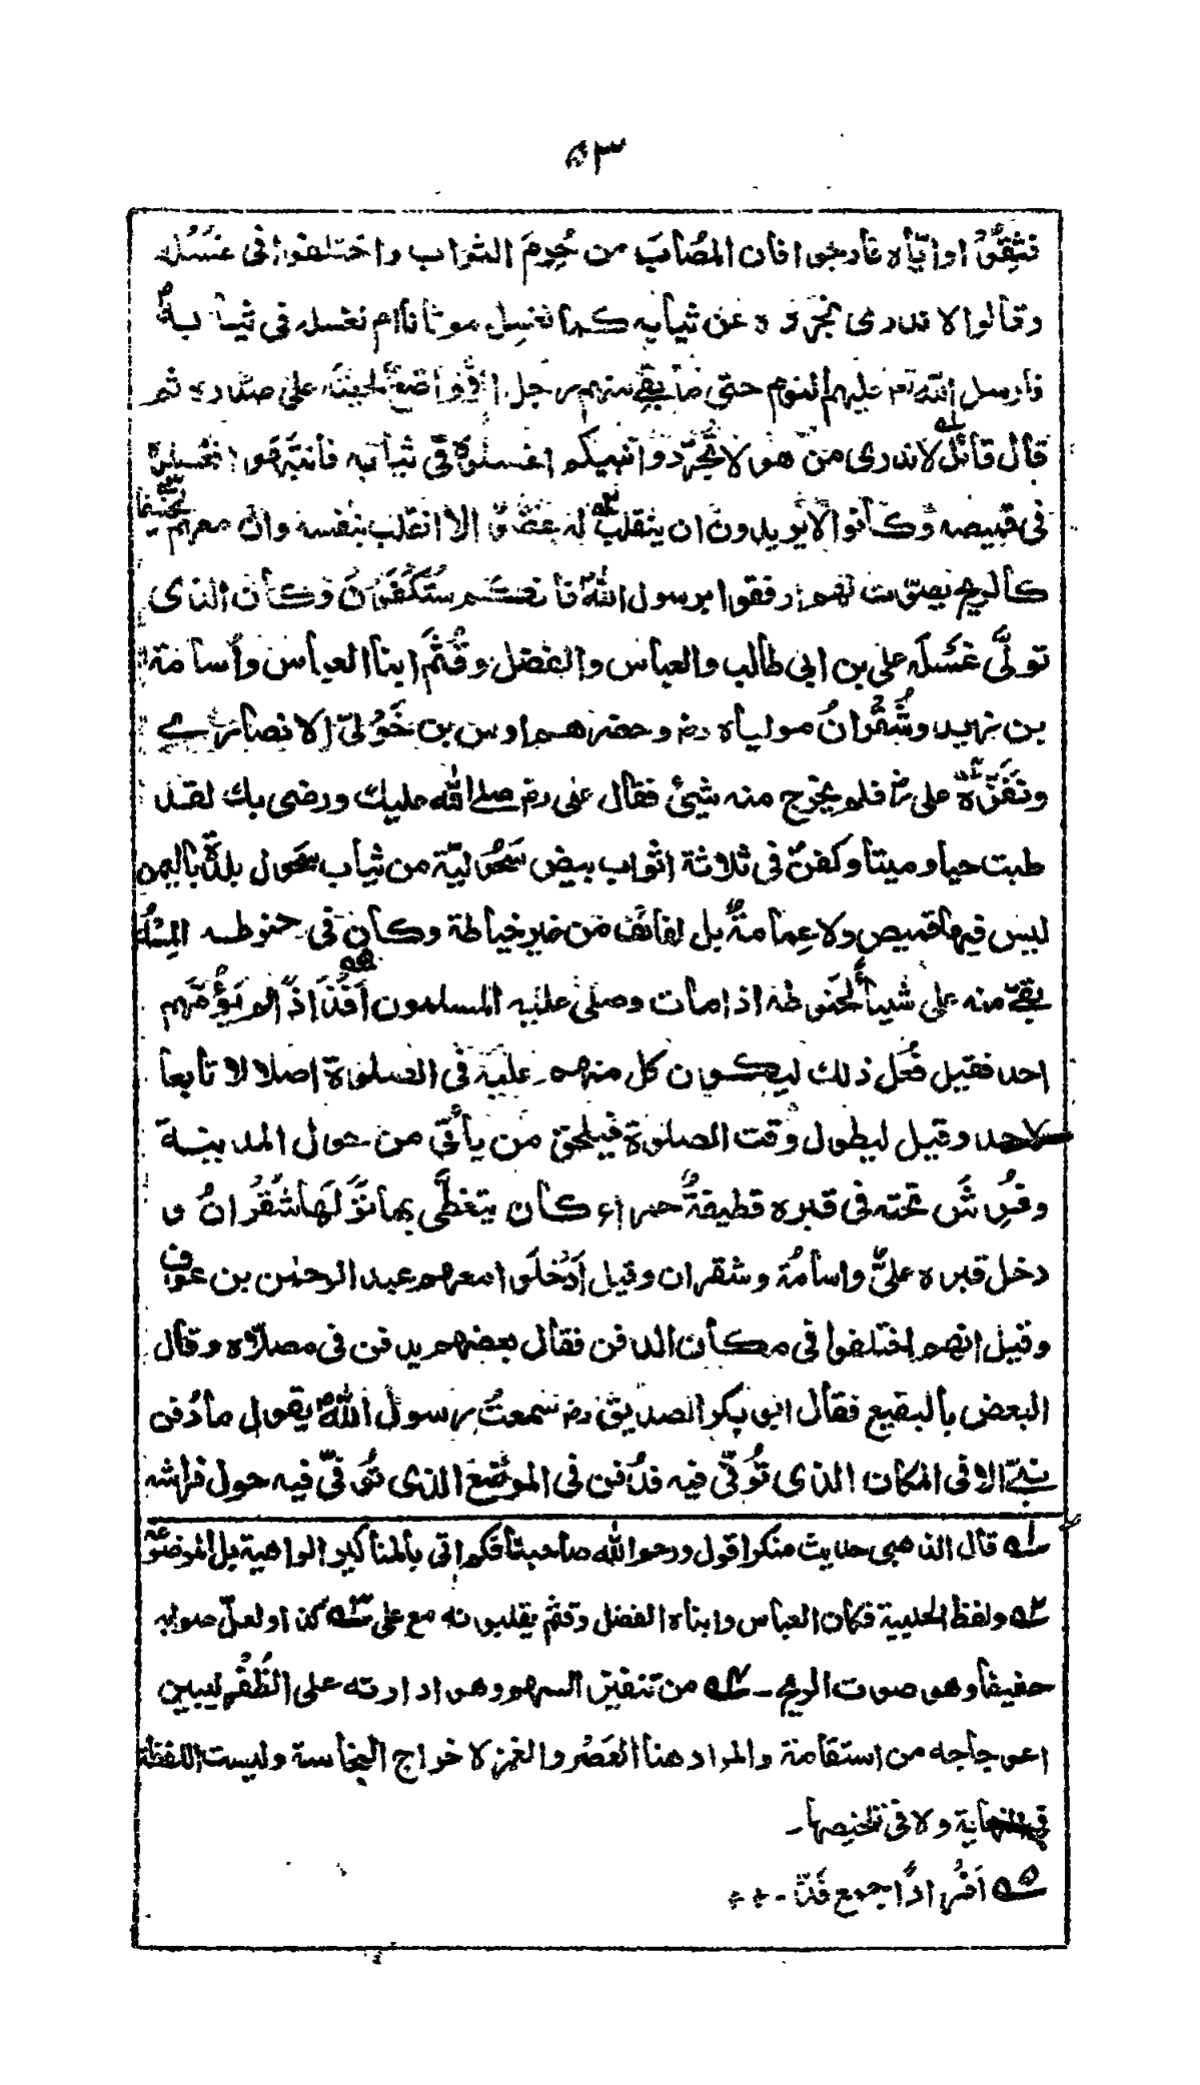 ٥٣
فثقوا واياه فارجوا فان المصاب من حُرِمَ الثواب واختلفوا فى غسله
وقالوا لا ندرى نجرده عن ثيابه كما نغسل موتانا ام نغسله فى ثيابه
فارسل الله تعم عليهم النوم حتى ما بقى منهم رجل الا واضع لحيته على صدره ثم
قال قائل لا ندرى من هو لا تجرّدوا نبيكم اغسلوه فى ثيابه فانتبهوا فغسلوه
فى قميصه وكانوا لا يريدون ان ينقلب له عضو الا انقلب بنفسه وان معهم لحفيفا
كالريح يصوّت لهم ارفقوا برسول الله فانكم ستكفون وكان الذى
تولّى غَسْلَه على بن ابى طالب والعباس والفضل وقُثَم ابنا العباس وأسامة
بن زيد وشُقْرانُ مولياه رضـ وحضرهم اوس بن خَوْلىّ الانصارى
ونفّزه على رضـ فلم يخرج منه شيئ فقال على رضـ صلى الله عليك ورضى بك لقد
طبت حيا وميتا وكفن فى ثلاثة اثواب بيض سَحُوليّة من ثياب سَحول بلدة باليمن
ليس فيها قميص ولا عِمامة بل لفائف من غير خياطة وكان فى حنوطه المسك
بقى منه على شيأ لحَنوطه اذا مات وصلى عليه المسلمون اَفْذاذًا لم يَؤمّهم
احد فقيل فُعل ذلك ليكون كل منهم عليه فى الصلوة اصلا لا تابعا
لاحد وقيل ليطول وقت الصلوة فيلحق من يأتى من حول المدينة
وفُرِشَ تحته فى قبره قطيفةٌ حمراء كان يتغطّى بها نزّلها شُقْرانُ و
دخل قبره علىٌّ واسامةُ وشقران وقيل اَدْخلوا معهم عبد الرحمن بن عوف
وقيل انهم اختلفوا فى مكان الدفن فقال بعضهم يدفن فى مصلاّه وقال
البعض بالبقيع فقال ابو بكر الصديق رضـ سمعتُ رسول الله يقول ما دُفن
نبىّ الا فى المكان الذى تُوفّى فيه فدُفن فى الموضع الذى تُوفّى فيه حول فراشه
١ــه قال الذهبى حديث منكر اقول ورحم الله صاحبنا فكم اتى بالمناكير الواهية بل الموضوعة
٢ــه ولفظ الحلبية فكان العباس وابناه الفضل وقثم يقلبونه مع على ٣ــه كذا ولعل صوابه
حفيفا وهو صوت الريح ـ ٤ــه من تنفيز السهم وهو ادارته على الظُفُر ليبين
اعوجاجه من استقامة والمراد هنا العَصْر والغمز لاخراج النجاسة وليست اللفظة
فى النهاية ولا فى تلخيصها ـ
٥ــه اَفْرادًا جمع فَذّ ـ ٭٭